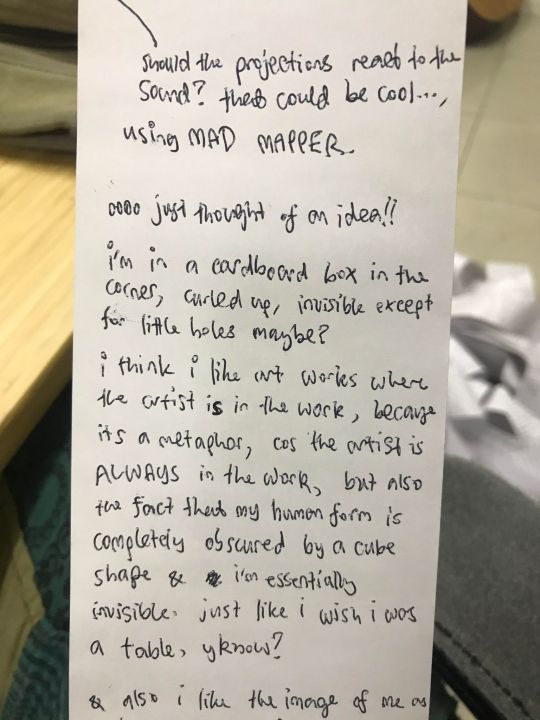 should the projections react to the
sound? that could be cool...,
using MAD MAPPER.
oooo just thought of an idea!!
i'm in a cardboard box in the
corner, curled up, invisible except
for little holes maybe?
i think i like art works where
the artist is in the work, because
its a metaphor, cos the artist is
ALWAYS in the work, but also
the fact that my human form is
completely obscured by a cube
shape & i'm essentially
invisible. just like i wish i was
a table, yknow?
& also i like the image of me as